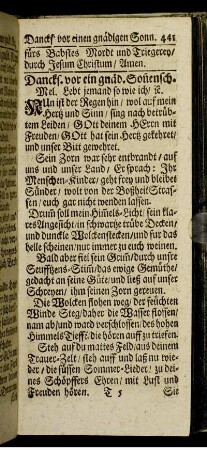 Danckſ. vor einen gnädigen Sonn. 441
fürs Babſtes Mordt und Triegerey/
durch Jeſum Chriſtum / Amen.
Danckſ. vor ein gnäd. Sonenſch.
Mel. Lebt jemand ſo wie ich/ ꝛc.
NUn iſt der Regen hin / wol auf mein
Hertz und Sinn / ſing nach betrüb⸗
tem Leiden / GOtt deinem HErrn mit
Freuden GOtt hat ſein Hertz gekehret/
und unſer Bitt gewehret.
Sein Zorn war ſehr entbrandt / auf
uns und unſer Land / Er ſprach: Ihr
Menſchen⸗Kinder / geht frey und bleibet
Sünder / wolt von der Boßheit Straſ⸗
ſen / euch gar nicht wenden laſſen.
Drum ſoll mein Him̃els⸗Licht / ſein kla⸗
res Angeſicht / in ſchwartze trübe Decken /
und dunckle Wolcken ſtecken / und für das
helle ſcheinen / nur immer zu euch weinen.
Bald aber fiel ſein Grim̃ / durch unſre
Seuffthens⸗Stim̃ / das ewig Gemüthe /
gedacht an ſeine Güte / und ließ auf unſer
Schreyen / ihm ſeinen Zorn gereuen.
Die Wolcken flohen weg / der feuchten
Winde Steg / daher die Waſſer floſſen /
nam ab / und ward verſchloſſen / des hohen
Himmels Tieffe / die hören auff zu trieffen.
Steh auf du mattes Feld / aus deinem
Trauer⸗Zelt / ſteh auff und laß nu wie⸗
der / die ſüſſen Sommer⸗Lieder / zu dei⸗
nes Schöpffers Ehren / mit Luſt und
Freuden hören. T 5 Die